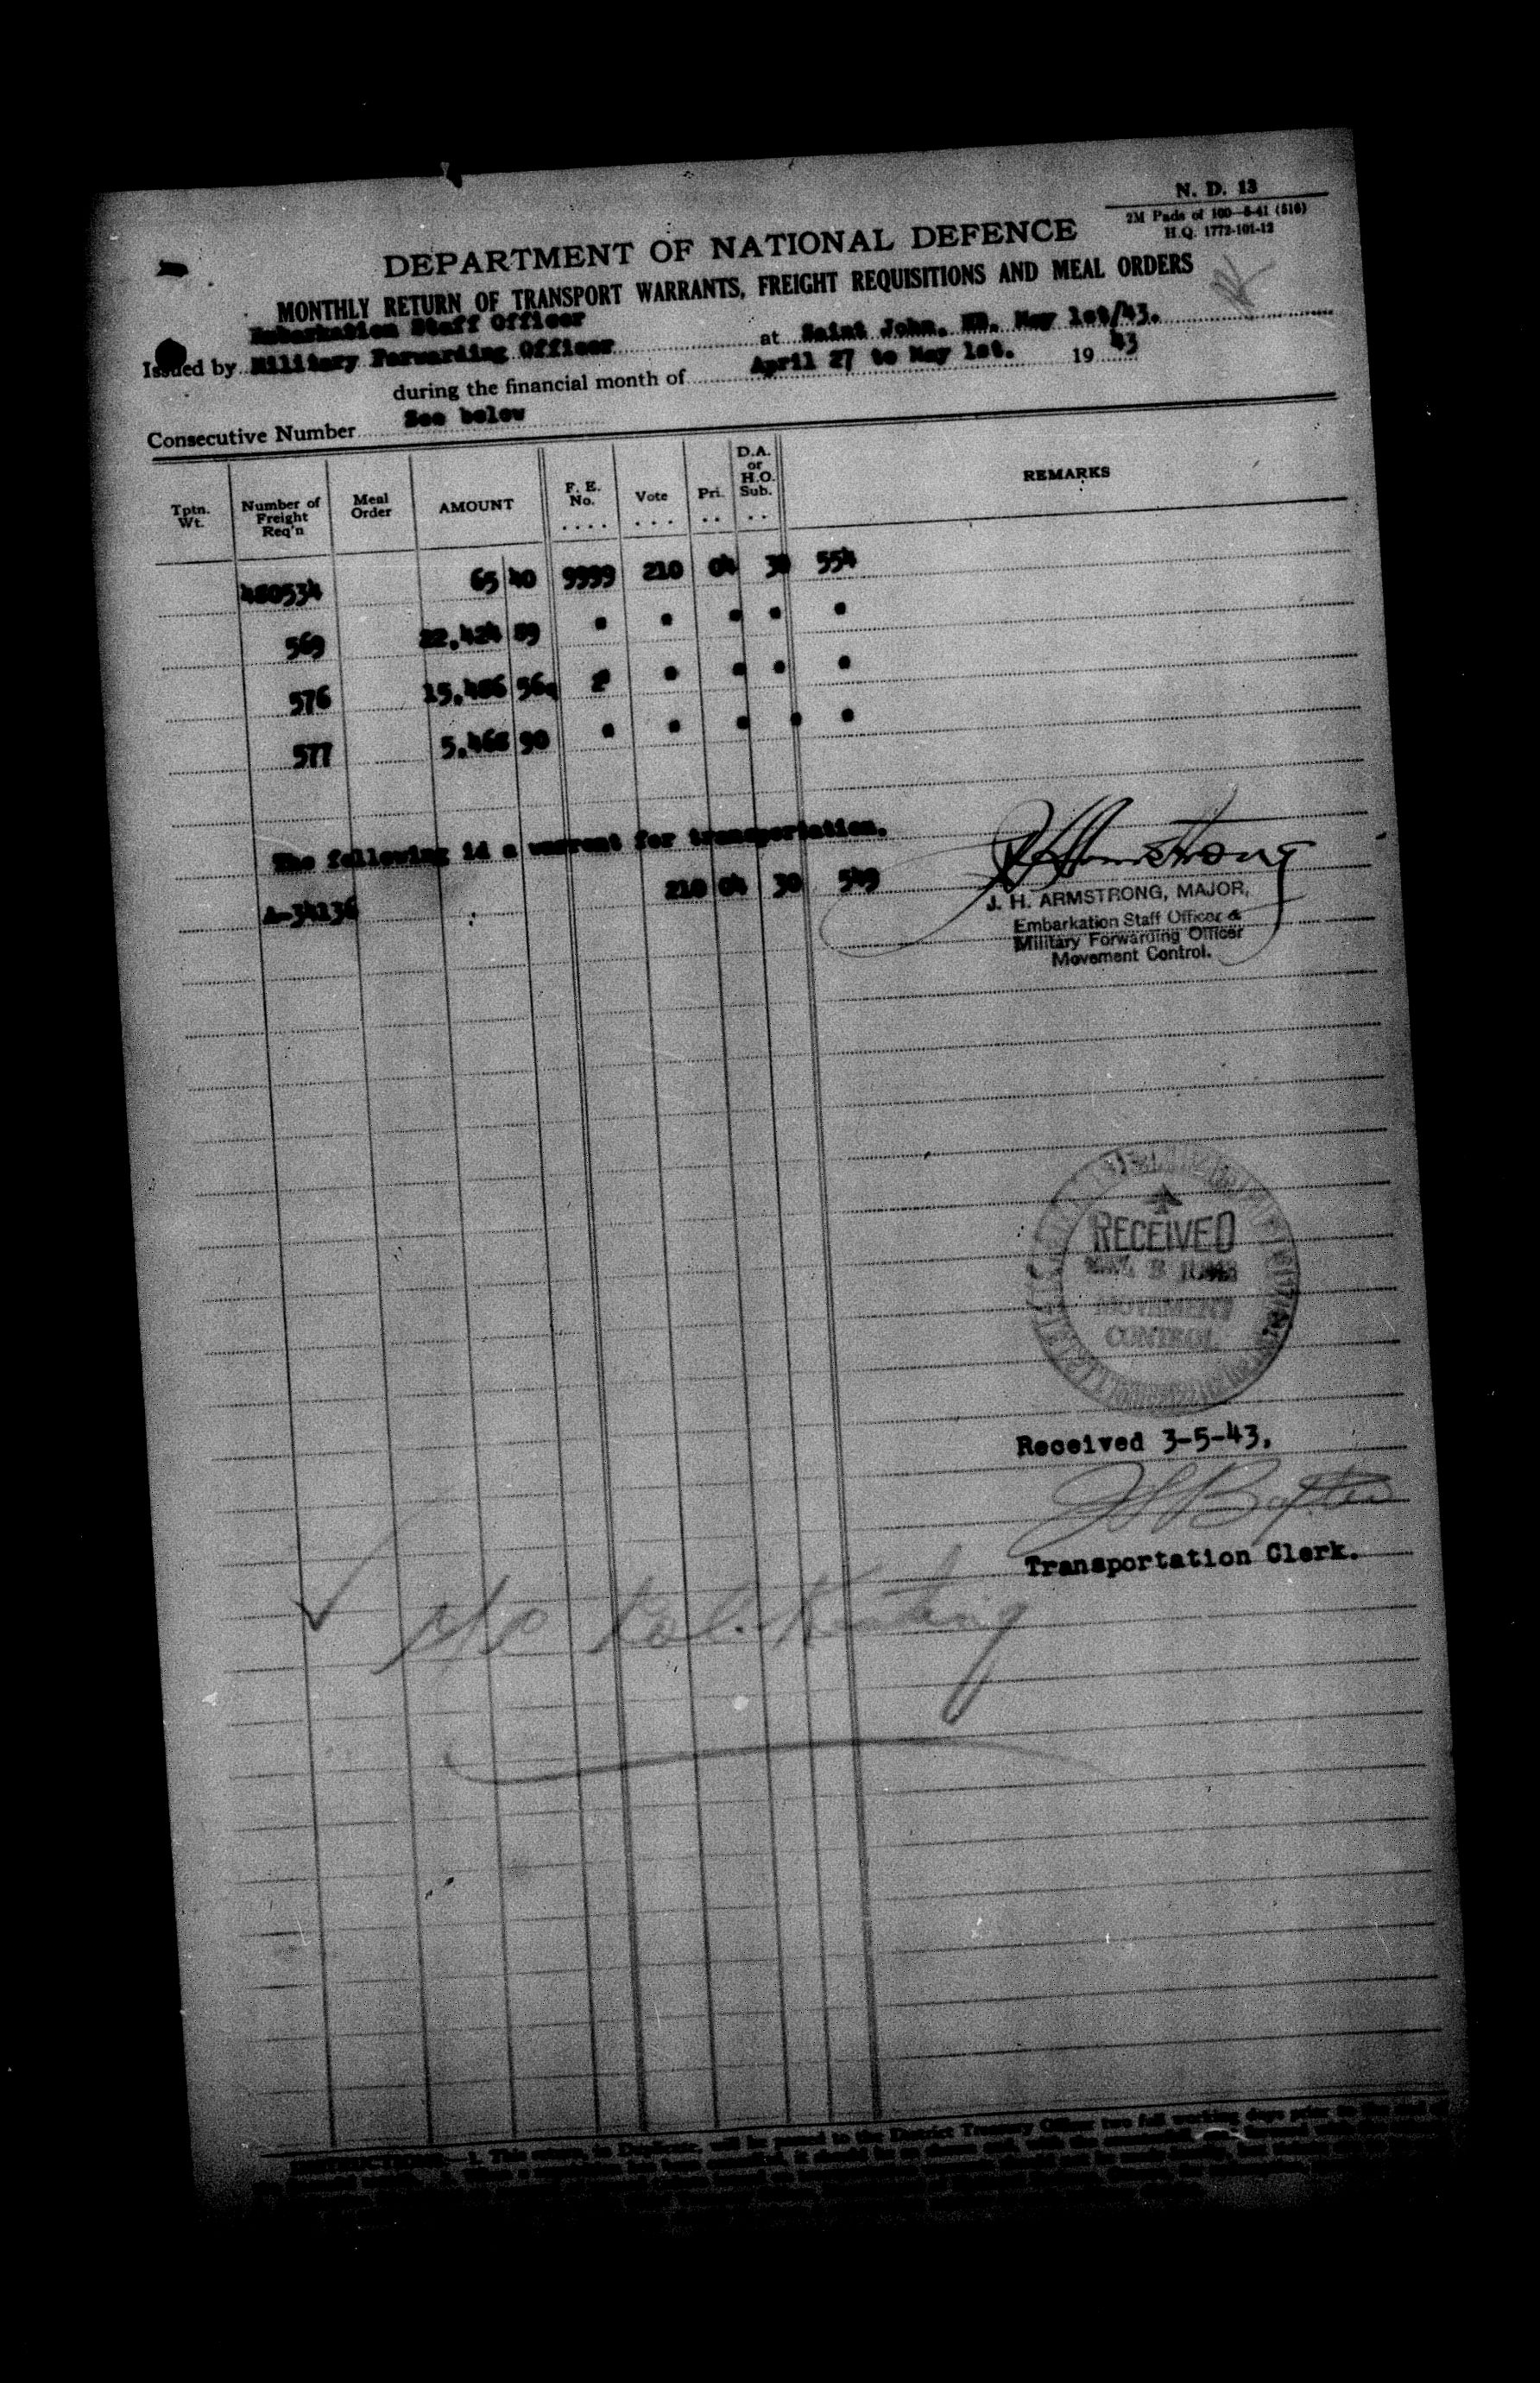 N. D. 13
2M Pads of 100—8-41 (516)
H.Q. 1772-101-12
DEPARTMENT OF NATIONAL DEFENCE
MONTHLY RETURN OF TRANSPORT WARRANTS, FREIGHT REQUISITIONS AND MEAL ORDERS
Embarkation Staff Officer
Issued by Military Forwarding Officer at Saint John. NB. May 1st/43.
during the financial month of April 27 to May 1st. 1943
Consecutive Number See below
Tptn. Wt. Number of Freight Req'n Meal Order AMOUNT F. E. No. Vote Pri. D.A. or H.O. Sub. REMARKS
480534 65 40 9999 210 04 30 554
569 22,424 89 " " " " "
576 15,486 56 " " " " "
577 5,468 90 " " " " "
The following id a warrent for transportation.
A-34136 210 04 30 549
J H Armstrong
J. H. ARMSTRONG, MAJOR,
Embarkation Staff Officer &
Military Forwarding Officer
Movement Control.
RECEIVED
MAY 3 1943
MOVEMENT
CONTROL
Received 3-5-43.
Transportation Clerk.
Keating
INSTRUCTIONS—1. This return, in Duplicate, will be passed to the District Treasury Officer two full working days prior to the end of